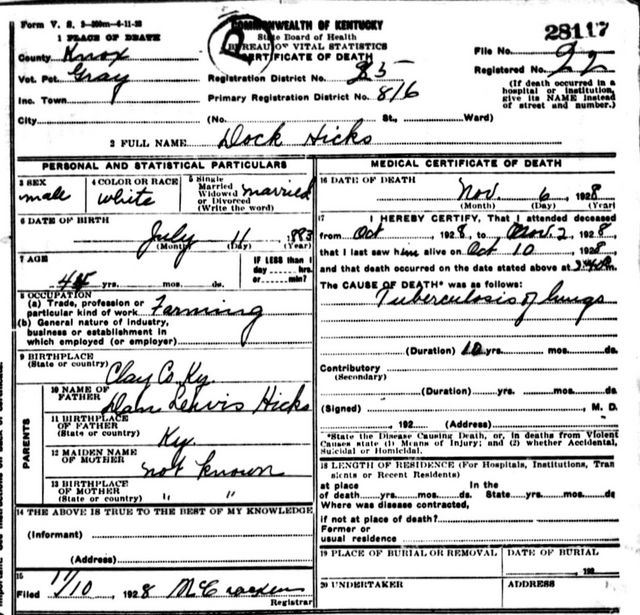 Form V. S. 2-200m-6-11-28
COMMONWEALTH OF KENTUCKY
28117
1 PLACE OF DEATH
State Board of Health
BUREAU OF VITAL STATISTICS
CERTIFICATE OF DEATH
County Knox
File No.
Vot. Pct. Gray
Registration District No. 85
Registered No. 22
Inc. Town
Primary Registration District No. 816
(If death occurred in a hospital or institution, give its NAME instead of street and number.)
City (No. St., Ward)
2 FULL NAME Dock Hicks
PERSONAL AND STATISTICAL PARTICULARS
3 SEX male
4 COLOR OR RACE White
5 Single Married Widowed or Divorced (Write the word) married
6 DATE OF BIRTH
July 11 1883
(Month) (Day) (Year)
7 AGE
45 yrs. mos. ds.
IF LESS than 1 day hrs. or min?
8 OCCUPATION
(a) Trade, profession or particular kind of work Farming
(b) General nature of industry, business or establishment in which employed (or employer)
9 BIRTHPLACE
(State or country) Clay Co. Ky.
PARENTS
10 NAME OF FATHER Dan Lewis Hicks
11 BIRTHPLACE OF FATHER
(State or country) Ky.
12 MAIDEN NAME OF MOTHER not known
13 BIRTHPLACE OF MOTHER
(State or country) " "
14 THE ABOVE IS TRUE TO THE BEST OF MY KNOWLEDGE
(Informant)
(Address)
15
Filed 11/10, 1928 McCracken
Registrar
MEDICAL CERTIFICATE OF DEATH
16 DATE OF DEATH
Nov 6, 1928
(Month) (Day) (Year)
17 I HEREBY CERTIFY, That I attended deceased
from Oct 1928, to Nov. 2, 1928,
that I last saw him alive on Oct 10 1928,
and that death occurred on the date stated above at
The CAUSE OF DEATH* was as follows:
Tuberculosis of lungs
(Duration) 10 yrs. mos. ds.
Contributory
(Secondary)
(Duration) yrs. mos. ds.
(Signed) , M. D.
, 192 (Address)
*State the Disease Causing Death, or, in deaths from Violent
Causes state (1) Means of Injury; and (2) whether Accidental,
Suicidal or Homicidal.
18 LENGTH OF RESIDENCE (For Hospitals, Institutions, Tran
sients or Recent Residents)
at place of death yrs. mos. ds. In the State yrs. mos. ds.
Where was disease contracted,
if not at place of death?
Former or
usual residence
19 PLACE OF BURIAL OR REMOVAL
DATE OF BURIAL
, 192
20 UNDERTAKER
ADDRESS